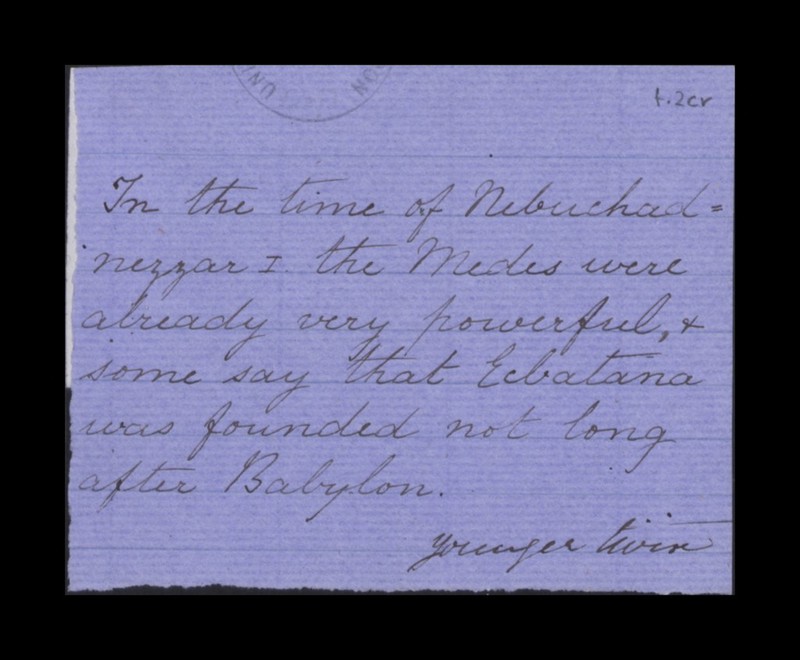 t.2cr
In the time of Nebuchad=
nezzar I. the Medes were
already very powerful, +
some say that Ecbatana
was founded not long
after Babylon.
younger twin